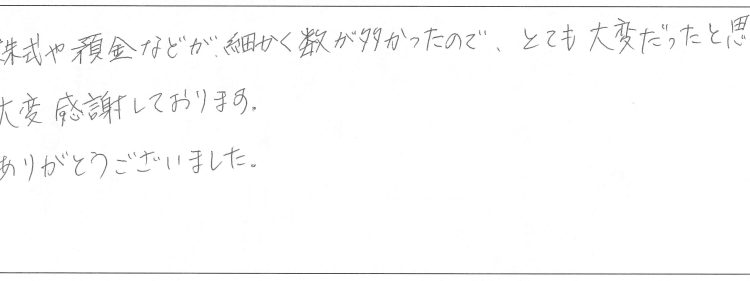 株式や預金などが、細かく数が多かったので、とても大変だったと思
大変感謝しております。
ありがとうございました。